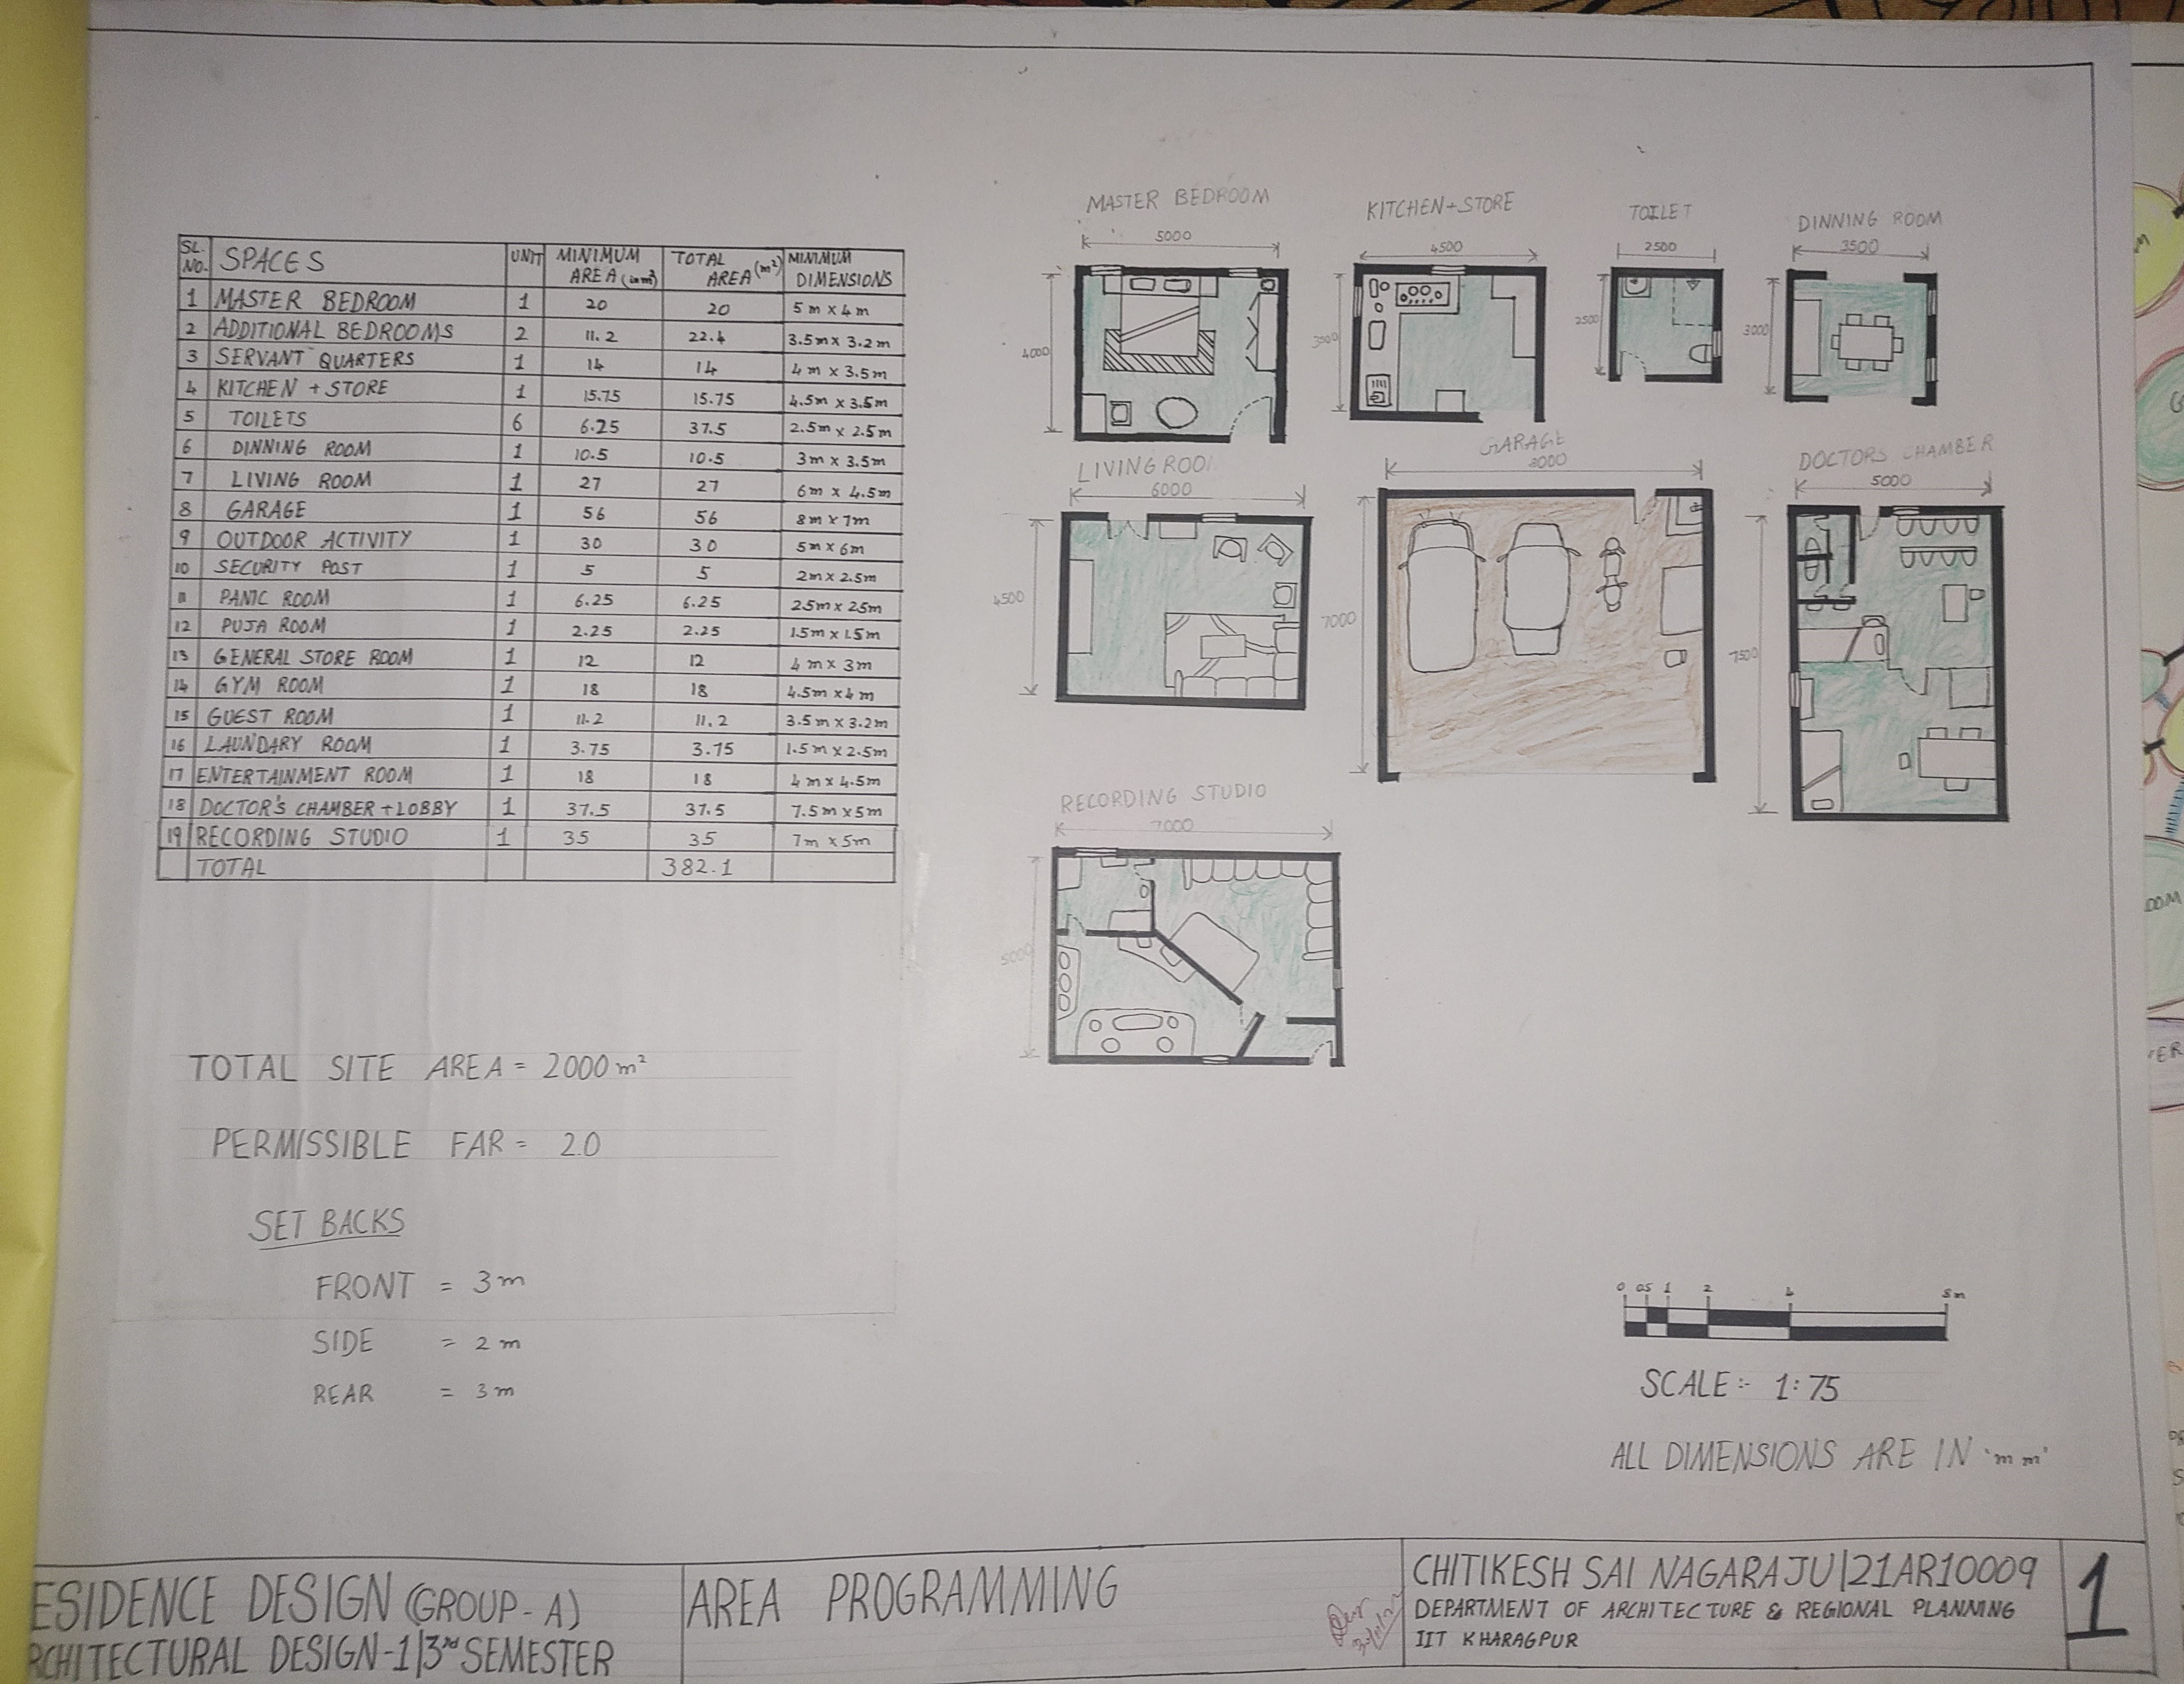 SL. NO. SPACES UNIT MINIMUM AREA (in m²) TOTAL AREA (m²) MINIMUM DIMENSIONS
1 MASTER BEDROOM 1 20 20 5m x 4m
2 ADDITIONAL BEDROOMS 2 11.2 22.4 3.5m x 3.2m
3 SERVANT QUARTERS 1 14 14 4m x 3.5m
4 KITCHEN + STORE 1 15.75 15.75 4.5m x 3.5m
5 TOILETS 6 6.25 37.5 2.5m x 2.5m
6 DINNING ROOM 1 10.5 10.5 3m x 3.5m
7 LIVING ROOM 1 27 27 6m x 4.5m
8 GARAGE 1 56 56 8m x 7m
9 OUTDOOR ACTIVITY 1 30 30 5m x 6m
10 SECURITY POST 1 5 5 2m x 2.5m
11 PANIC ROOM 1 6.25 6.25 2.5m x 2.5m
12 PUJA ROOM 1 2.25 2.25 1.5m x 1.5m
13 GENERAL STORE ROOM 1 12 12 4m x 3m
14 GYM ROOM 1 18 18 4.5m x 4m
15 GUEST ROOM 1 11.2 11.2 3.5m x 3.2m
16 LAUNDARY ROOM 1 3.75 3.75 1.5m x 2.5m
17 ENTERTAINMENT ROOM 1 18 18 4m x 4.5m
18 DOCTOR'S CHAMBER + LOBBY 1 37.5 37.5 7.5m x 5m
19 RECORDING STUDIO 1 35 35 7m x 5m
TOTAL 382.1
MASTER BEDROOM
5000
4000
KITCHEN+STORE
4500
3500
TOILET
2500
2500
DINNING ROOM
3500
3000
LIVING ROOM
6000
4500
GARAGE
8000
7000
DOCTORS CHAMBER
5000
7500
RECORDING STUDIO
7000
5000
TOTAL SITE AREA = 2000 m²
PERMISSIBLE FAR = 2.0
SET BACKS
FRONT = 3m
SIDE = 2m
REAR = 3m
0 0.5 1 2 4 8m
SCALE:- 1:75
ALL DIMENSIONS ARE IN 'mm'
ESIDENCE DESIGN (GROUP-A)
RCHITECTURAL DESIGN-1|3rd SEMESTER
AREA PROGRAMMING
CHITIKESH SAI NAGARAJU|21AR10009
DEPARTMENT OF ARCHITECTURE & REGIONAL PLANNING
IIT KHARAGPUR
1